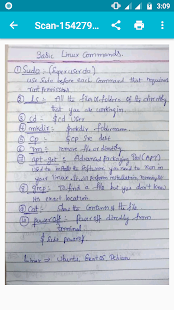 3:09
Scan-154279...
Basic Linux Commands.
① Sudo :- (Superuser do)
Use Sudo before each command that requires
root permissions
② ls :- All the files & folders of the directory
that you are working in.
③ cd - $cd user
④ mkdir :- $mkdir foldername
⑤ cp :- $cp src dest
⑥ rm :- remove file or directory
⑦ apt-get :- Advanced Packaging Tool (APT)
Used to install the software you need to run in
your Linux
⑧ grep :- To find a file but you don't know
its exact location
⑨ Cat :- Show the contents of the file
⑩ poweroff :- Power off directly from
terminal
$ sudo poweroff
Linux → Ubuntu Debian